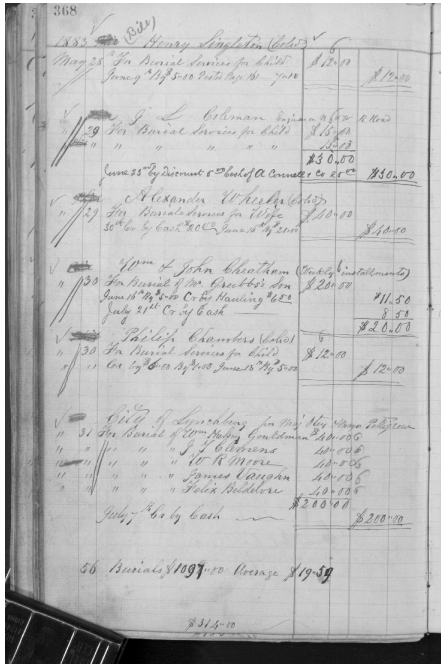 368
(Bill)
1883 Henry Singleton (Cold) 6
May 28 For Burial Services for Child $12-00
June 9th By $5-00 Posto Page 161 7-00 $12-00
J L Coleman Engineer R Road
" 29 For Burial Services for Child $15-00
" " " " " " " 15-00
$30-00
June 23rd By discount 5 00 Cash of A Connell Cr 25 00 $30-00
Alexander Wheeler (Cold)
" 29 For Burial Services for Wife $40-00
30th Cr by Cash $20 June 16th By 20-00 $40-00
Wm & John Cheatham (Weekly installments)
" 30 For Burial of Mr Grubbs's Son $20-00
June 16th By $5-00 Cr by Hauling $6 50 $11.50
July 21st Cr by Cash 8 50
$20-00
Philip Chambers (Cold) 6
" 30 For Burial Services for Child $12-00
" " Cr by $6-00 By $1-00 June 13th By 5-00 $12-00
City of Lynchburg for Maj Otey Mayor Pettigrew
" 31 For Burial of Wm Gouldman $40-00 6
" " " " " J J Clemens 40-00 6
" " " " W R Moore 40-00 6
" " " " James Vaughn 40-00 6
" " " " Felix 40-00 6
$200-00
July 7th Cr by Cash $200-00
56 Burials $1097-00 Average $19-59
$314-00